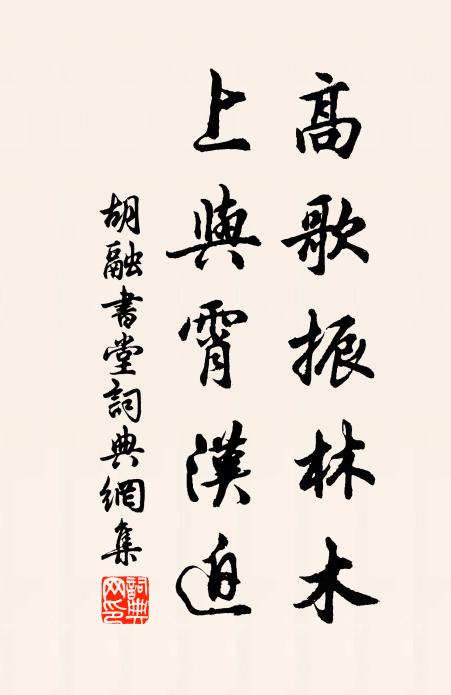 高歌振林木
上與霄漢迫
胡融書堂詞典網集
詞典網印